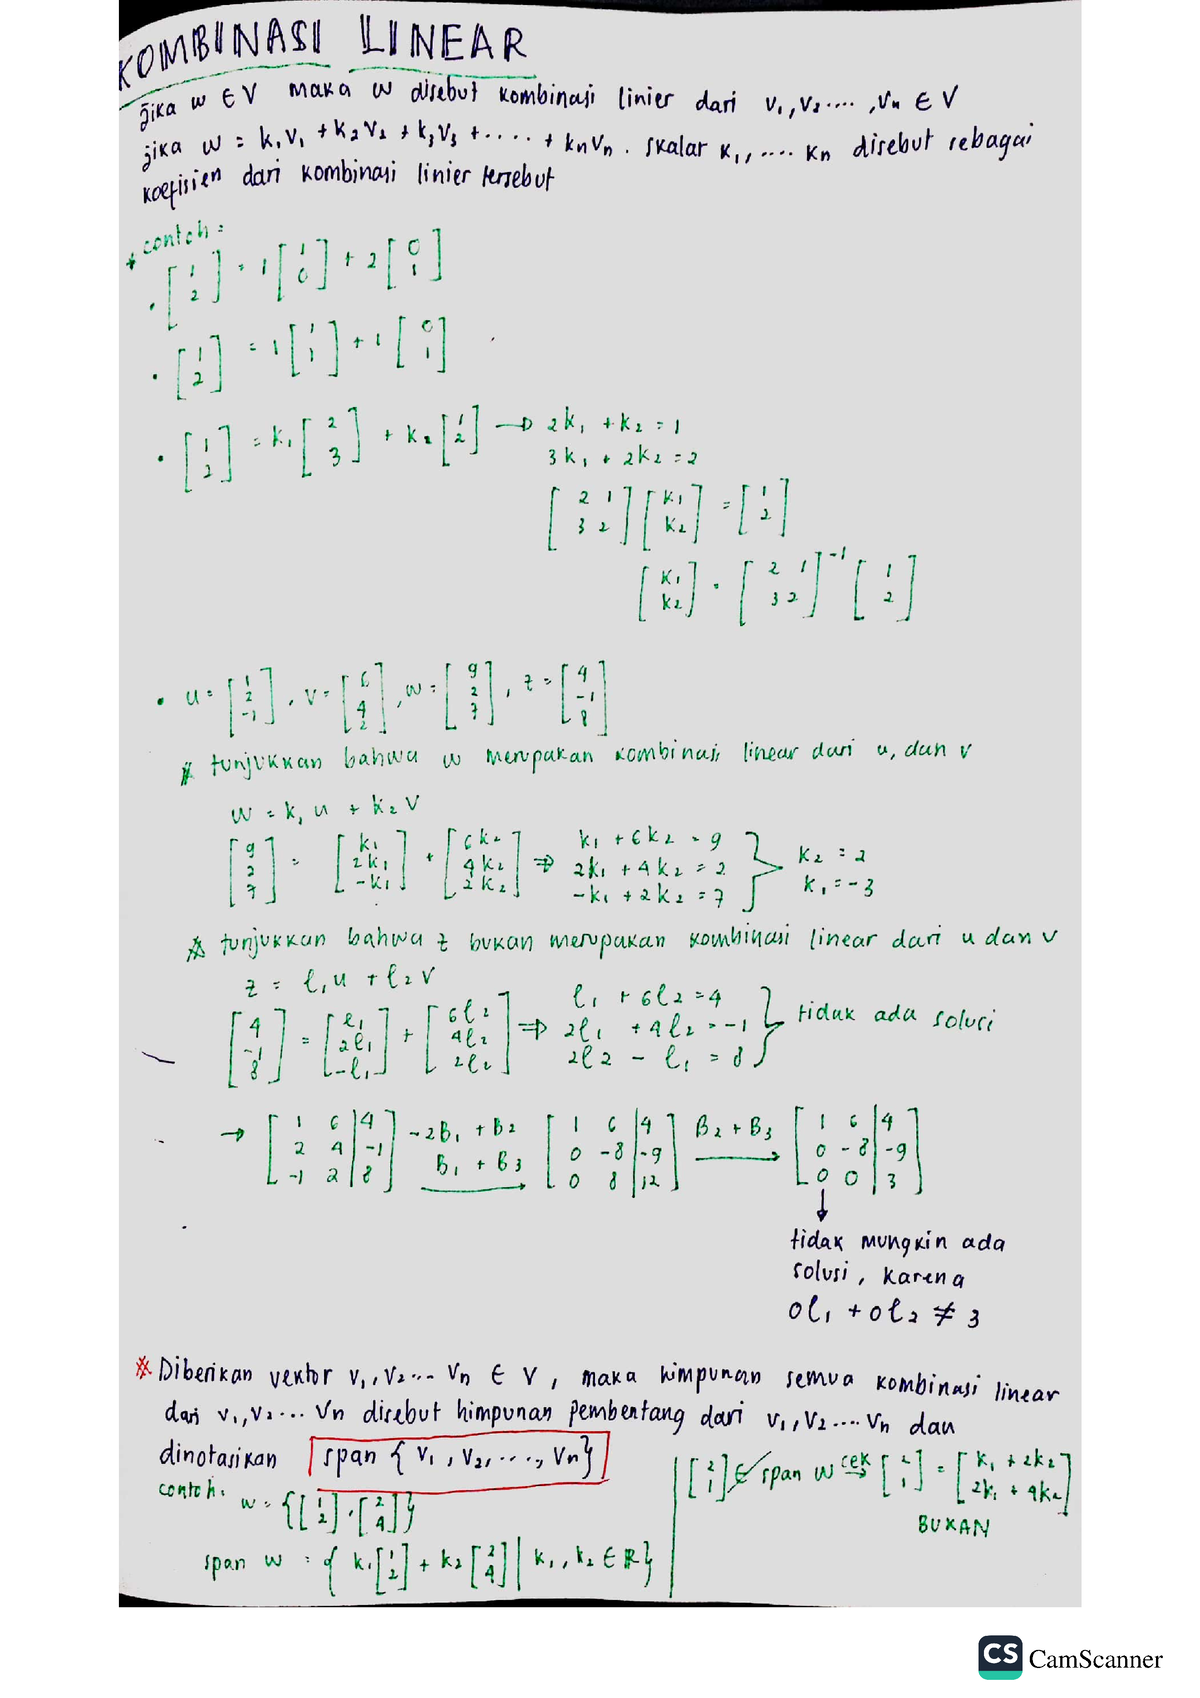 KOMBINASI LINEAR
jika w ∈ V maka w disebut kombinasi linier dari v₁, v₂ .... , vₙ ∈ V
jika w = k₁v₁ + k₂v₂ + k₃v₃ + .... + kₙvₙ . skalar k₁, .... kₙ disebut sebagai
koefisien dari kombinasi linier tersebut
* contoh :
• [1 2] = 1 [1 0] + 2 [0 1]
• [1 2] = 1 [1 1] + 1 [0 1]
• [1 2] = k₁ [2 3] + k₂ [1 2] → 2k₁ + k₂ = 1
3k₁ + 2k₂ = 2
[2 1 3 2] [k₁ k₂] = [1 2]
[k₁ k₂] = [2 1 3 2]⁻¹ [1 2]
• u = [1 2 -1] , v = [6 4 2] , w = [9 2 7] , z = [4 -1 8]
* tunjukkan bahwa w merupakan kombinasi linear dari u, dan v
w = k₁ u + k₂ v
[9 2 7] = [k₁ 2k₁ -k₁] + [6k₂ 4k₂ 2k₂] ⇒ k₁ + 6k₂ = 9
2k₁ + 4k₂ = 2
-k₁ + 2k₂ = 7
} k₂ = 2
k₁ = -3
* tunjukkan bahwa z bukan merupakan kombinasi linear dari u dan v
z = ℓ₁u + ℓ₂v
[4 -1 8] = [ℓ₁ 2ℓ₁ -ℓ₁] + [6ℓ₂ 4ℓ₂ 2ℓ₂] ⇒ ℓ₁ + 6ℓ₂ = 4
2ℓ₁ + 4ℓ₂ = -1
2ℓ₂ - ℓ₁ = 8
} tidak ada solusi
→ [1 6 | 4 2 4 | -1 -1 2 | 8] -2B₁ + B₂ B₁ + B₃ → [1 6 | 4 0 -8 | -9 0 8 | 12] B₂ + B₃ → [1 6 | 4 0 -8 | -9 0 0 | 3]
↓
tidak mungkin ada
solusi, karena
0ℓ₁ + 0ℓ₂ ≠ 3
* Diberikan vektor v₁, v₂ ... vₙ ∈ V , maka himpunan semua kombinasi linear
dari v₁, v₂ ... vₙ disebut himpunan pembentang dari v₁, v₂ .... vₙ dan
dinotasikan span { v₁ , v₂, ...., vₙ}
contoh:
w = {[1 2] , [2 4]}
span w = { k₁ [1 2] + k₂ [2 4] | k₁, k₂ ∈ ℝ}
[2 1] ∉ span w cek → [2 1] = [k₁ + 2k₂ 2k₁ + 4k₂]
BUKAN
CS CamScanner